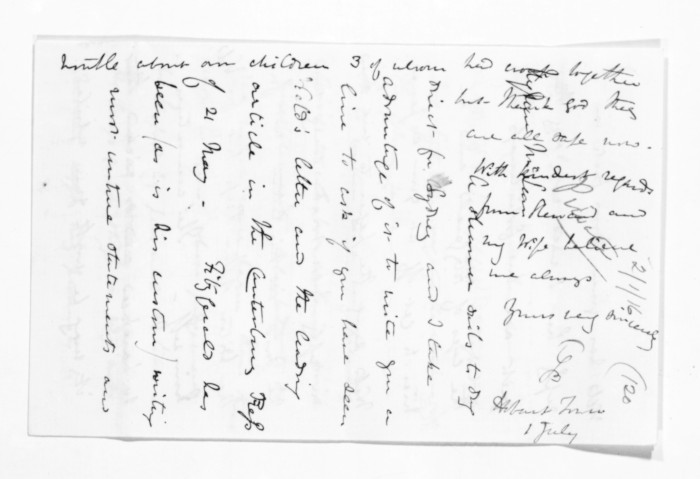 trouble about our children 3 of whom had croup together
but thank God they
are all safe now.
With kindest regards
from and
my wife believe
me always
Yours very sincerely
(120
Hobart Town
1 July
My dear McLean
A steamer sails to day
direct for Sydney and I take
advantage of it to write you a
line to ask if you have seen
Weld's letter and the leading
article in the Canterbury Press
of 21 May - Fitzgerald has
been (as is his custom) writing
most untrue statements and